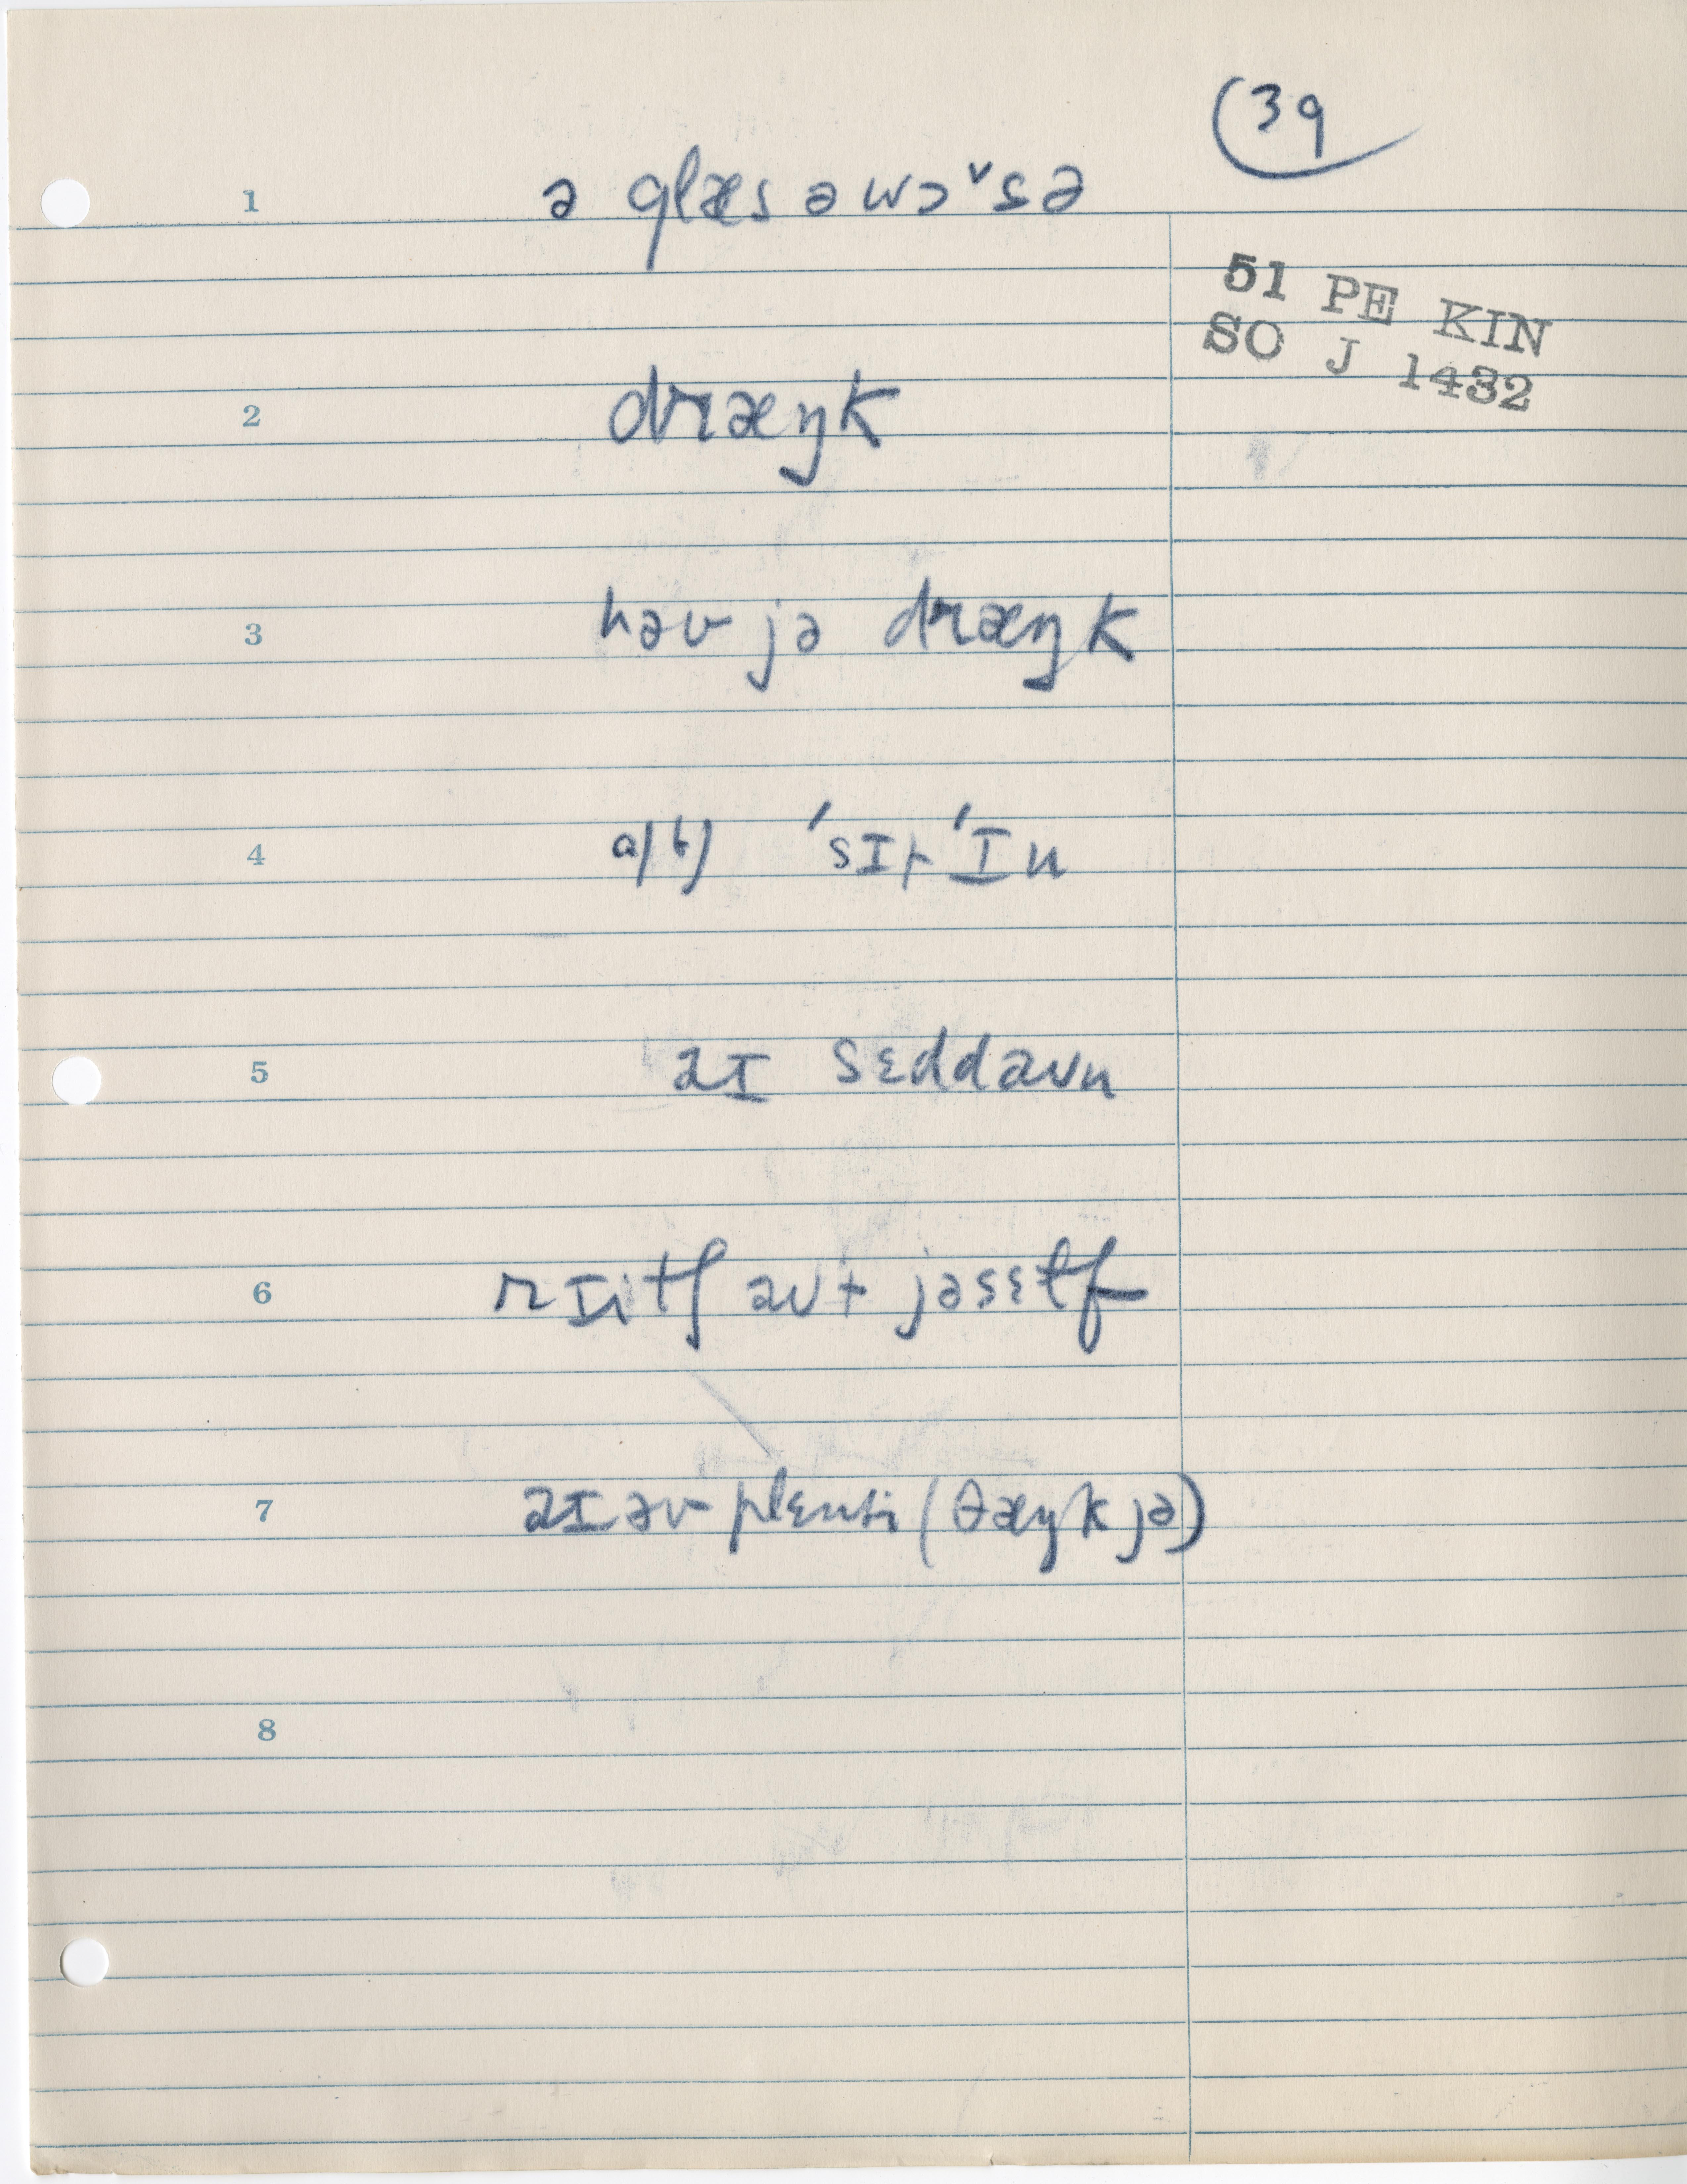 39
1 ə glæs ə wɔˇsə
51 PE KIN
SO J 1432
2 dræŋk
3 həv jə dræŋk
4 a) b) ˈsɪt ˈɪn
5 aɪ sɛddaun
6 rɪitʃ aut jəsɛlf
7 aɪ əv plɛnti (θæŋk jə)
8